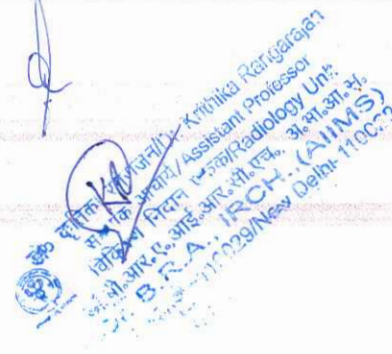 डॉ० कृतिका रंगराजन/Dr. Krithika Rangarajan
सहायक आचार्य/Assistant Professor
विकिरण निदान एकक/Radiology Unit
डॉ.बी.आर.ए.आई.आर.सी.एच. अ.भा.आ.सं.
Dr. B.R.A., IRCH., (AIIMS)
110029/New Delhi-110029